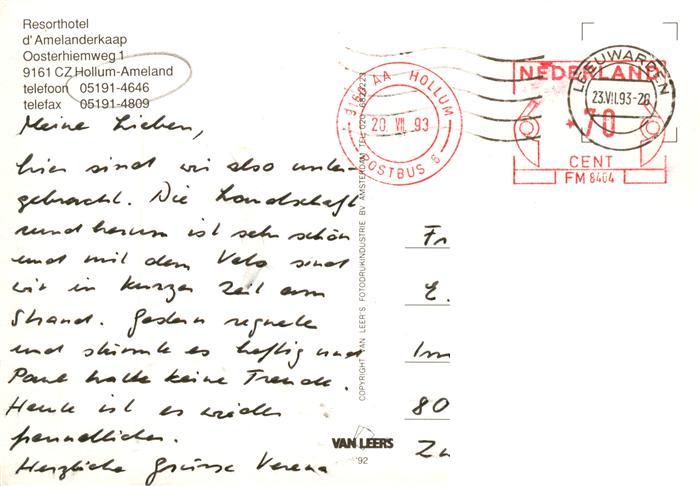 Resorthotel
d'Amelanderkaap
Oosterhiemweg 1
9161 CZ Hollum-Ameland
telefoon 05191-4646
telefax 05191-4809
Meine Lieben,
hier sind wir also unter-
gebracht. Die Landschaft
rundherum ist sehr schön
und mit dem Velo sind
wir in kurzer Zeit am
Strand. Gestern regnete
und stürmte es heftig und
Paul hatte keine Freude.
Heute ist es wieder
freundlicher.
Herzliche Grüsse Verena
COPYRIGHT VAN LEER'S FOTODRUKINDUSTRIE BV AMSTERDAM TEL 020-
VAN LEERS
'92
9161 AA HOLLUM
20 VII 93
POSTBUS 8
NEDERLAND
70
CENT
FM 8404
LEEUWARDEN
23.VII.93-20
Fr
E.
Im
80
Zu